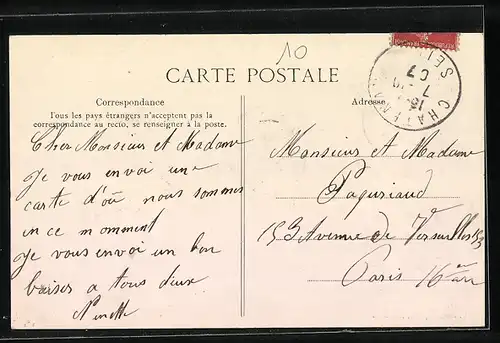 10
CARTE POSTALE
Correspondance
Tous les pays étrangers n'acceptent pas la
correspondance au recto, se renseigner à la poste.
Cher Monsieur et Madame
Je vous envoi une
carte d'où nous sommes
en ce moment
Je vous envoi un bon
baiser a tous deux
Ninette
Adresse
Monsieur et Madame
153 Avenue de Versailles 153
Paris 16 en arr
CHATENAY
SEINE
7
07